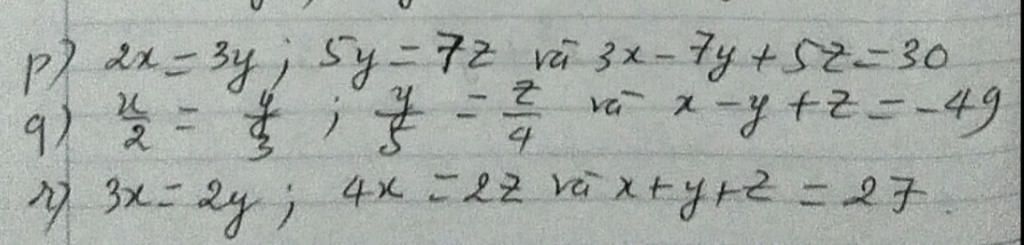 p) 2x = 3y ; 5y = 7z và 3x - 7y + 5z = 30
q) x/2 = y/3 ; y/5 = z/4 và x - y + z = -49
r) 3x = 2y ; 4x = 2z và x + y + z = 27